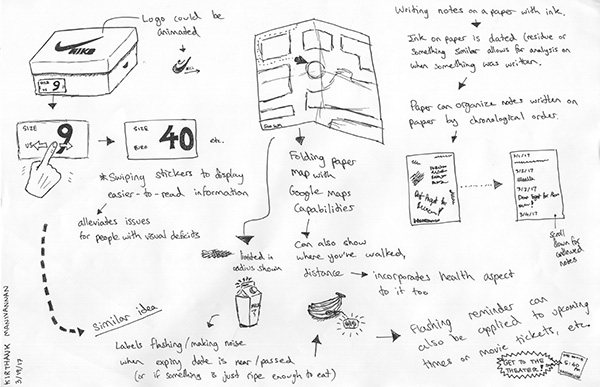 Logo could be
animated
NIKE
SIZE
US
9
SIZE
EURO
40
etc.
*Swiping stickers to display
easier-to-read information
alleviates issues
for people with visual deficits
Folding paper
map with
Google Maps
Capabilities
limited in
radius shown
Can also show
where you've walked,
distance
incorporates health aspect
to it too
Writing notes on a paper with ink.
Ink on paper is dated (residue or
something similar allows for analysis on
when something was written.
Paper can organize notes written on
paper by chronological order.
Scroll
down for
continued
notes
similar idea
MILK
Labels flashing/making noise
when expiry date is near/passed
(or if something is just ripe enough to eat)
Flashing reminder can
also be applied to upcoming
times or movie tickets, etc.
GET TO THE
THEATER!
KIRTHANK MANIVANNAN
3/19/17